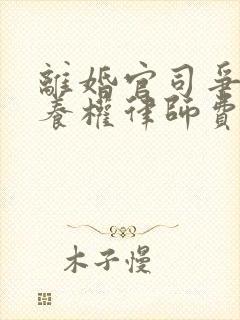 離婚官司爭
養權律師費
木子慢